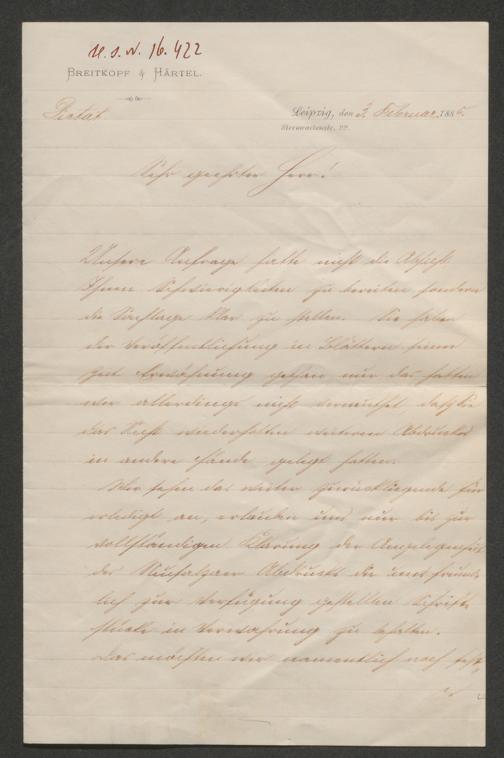 U. S. N. 16.422
BREITKOPF & HÄRTEL.
Leipzig, den 3. Februar 1885.
Sternwartenstr. 22.
Sehr geehrter Herr!
Unsere Anfrage hatte nicht die Absicht
Ihnen Schwierigkeiten zu bereiten sondern
die Sachlage klar zu stellen. Sie haben
der Veröffentlichung in Blättern seiner
Zeit Erwähnung gethan nur das hatten
wir allerdings nicht vermuthet daß Sie
das Recht wiederholten weiteren Abdruckes
in andere Hände gelegt hatten.
Wir sehen das weiter zurückliegende für
erledigt an, erlauben uns nur bis zur
vollständigen Klärung der Angelegenheit
des Abdrucks die uns freund-
lich zur Verfügung gestellten Schrift-
stücke in Verwahrung zu behalten.
Das möchten wir namentlich noch